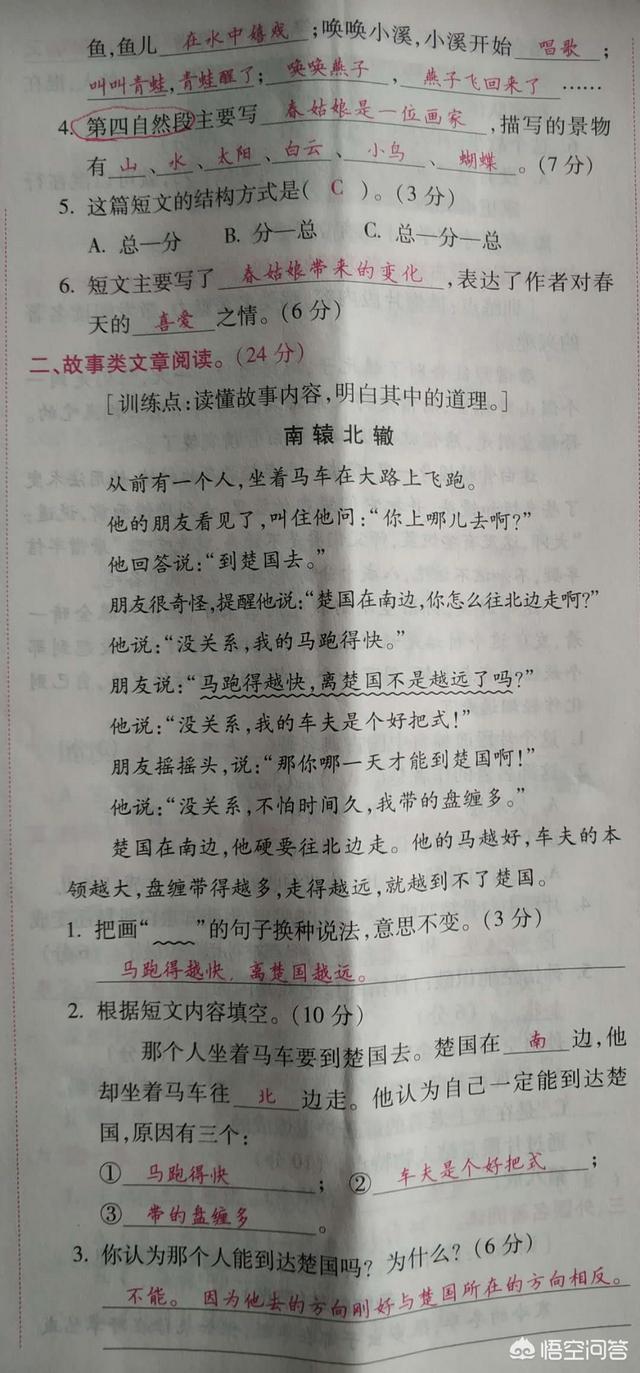 鱼,鱼儿 在水中嬉戏 ;唤唤小溪,小溪开始 唱歌 ;
叫叫青蛙,青蛙醒了; 唤唤燕子 , 燕子飞回来了 ……
4. 第四自然段主要写 春姑娘是一位画家 ,描写的景物
有 山 、 水 、 太阳 、 白云 、 小鸟 、 蝴蝶 。(7分)
5. 这篇短文的结构方式是( C )。(3分)
A. 总—分 B. 分—总 C. 总—分—总
6. 短文主要写了 春姑娘带来的变化 ,表达了作者对春
天的 喜爱 之情。(6分)
二、故事类文章阅读。(24分)
[训练点:读懂故事内容,明白其中的道理。]
南辕北辙
从前有一个人,坐着马车在大路上飞跑。
他的朋友看见了,叫住他问:“你上哪儿去啊?”
他回答说:“到楚国去。”
朋友很奇怪,提醒他说:“楚国在南边,你怎么往北边走啊?”
他说:“没关系,我的马跑得快。”
朋友说:“马跑得越快,离楚国不是越远了吗?”
他说:“没关系,我的车夫是个好把式!”
朋友摇摇头,说:“那你哪一天才能到楚国啊!”
他说:“没关系,不怕时间久,我带的盘缠多。”
楚国在南边,他硬要往北边走。他的马越好,车夫的本
领越大,盘缠带得越多,走得越远,就越到不了楚国。
1. 把画“ ”的句子换种说法,意思不变。(3分)
马跑得越快,离楚国越远。
2. 根据短文内容填空。(10分)
那个人坐着马车要到楚国去。楚国在 南 边,他
却坐着马车往 北 边走。他认为自己一定能到达楚
国,原因有三个:
① 马跑得快 ; ② 车夫是个好把式 ;
③ 带的盘缠多 。
3. 你认为那个人能到达楚国吗?为什么?(6分)
不能。因为他去的方向刚好与楚国所在的方向相反。
悟空问答